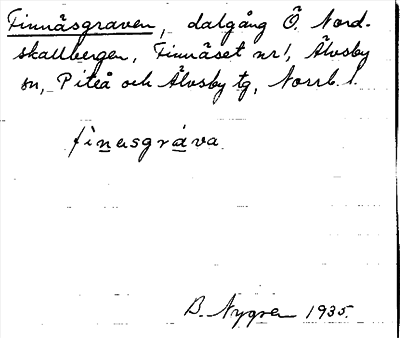 Finnäsgraven, dalgång Ö. Nord-
skallbergen, Finnäset nr 1, Älvsby
sn, Piteå och Älvsby tg, Norrb. l.
finasgráva
B. Nygren 1935.